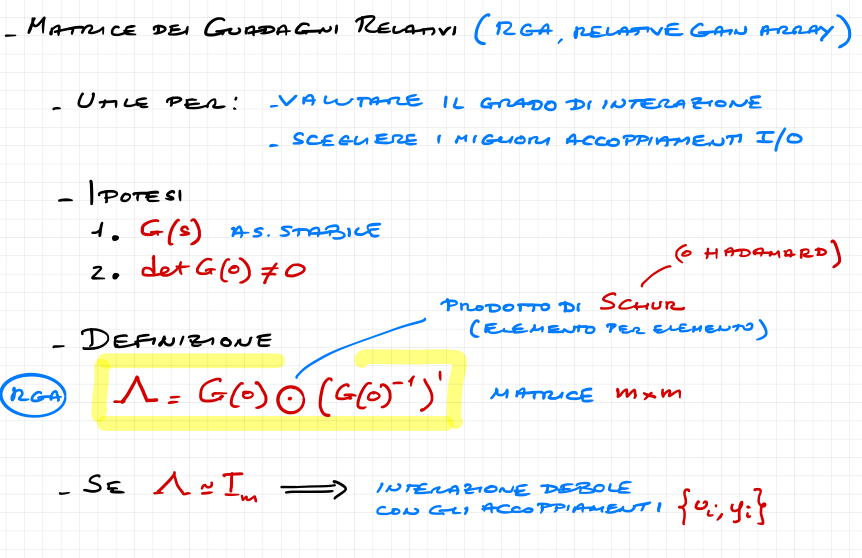 - MATRICE DEI GUADAGNI RELATIVI (RGA, RELATIVE GAIN ARRAY)
- UTILE PER: - VALUTARE IL GRADO DI INTERAZIONE
- SCEGLIERE I MIGLIORI ACCOPPIAMENTI I/O
- IPOTESI
1. G(s) AS. STABILE
2. det G(0) ≠ 0
(O HADAMARD)
PRODOTTO DI SCHUR
(ELEMENTO PER ELEMENTO)
- DEFINIZIONE
RGA Λ = G(0) ⊙ (G(0)⁻¹)' MATRICE m×m
- SE Λ ≃ Iₘ ⟹ INTERAZIONE DEBOLE
CON GLI ACCOPPIAMENTI {υᵢ, yᵢ}